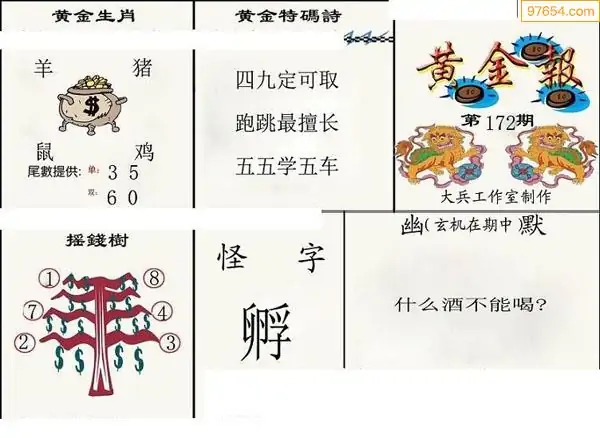 97654.com
黄金生肖
羊 猪
$
鼠 鸡
尾數提供: 单: 3 5
双: 6 0
黄金特碼詩
四九定可取
跑跳最擅长
五五学五车
黄金報
第172期
大兵工作室制作
摇錢樹
① ⑧
⑦ ④
② ③
$ $ $ $ $ $ $ $ $ $ $
怪 字
孵
幽(玄机在期中)默
什么酒不能喝?